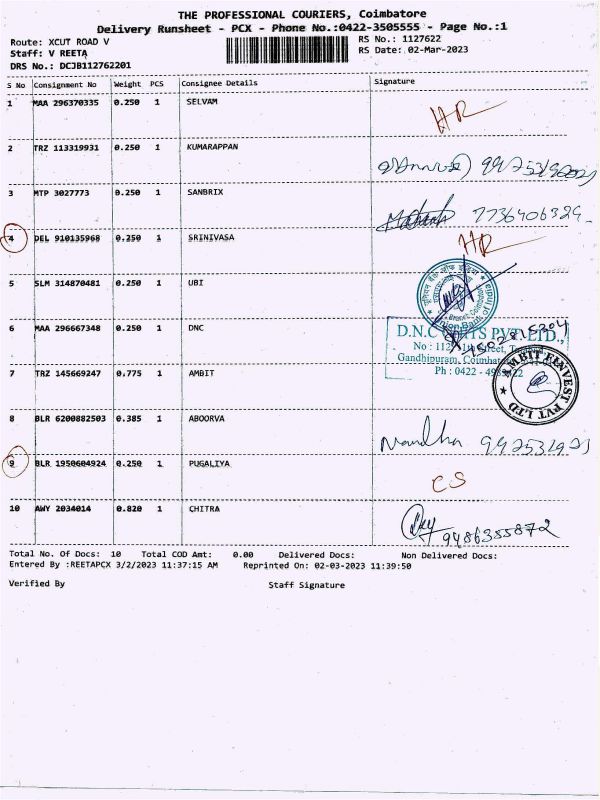 THE PROFESSIONAL COURIERS, Coimbatore
Delivery Runsheet - PCX - Phone No.:0422-3505555 - Page No.:1
Route: XCUT ROAD V RS No.: 1127622
Staff: V REETA RS Date: 02-Mar-2023
DRS No.: DCJB112762201
S No Consignment No Weight PCS Consignee Details Signature
1 MAA 296370335 0.250 1 SELVAM
HR
2 TRZ 113319931 0.250 1 KUMARAPPAN
3 MTP 3027773 0.250 1 SANBRIX
7736406329
4 DEL 910135968 0.250 1 SRINIVASA HR
5 SLM 314870481 0.250 1 UBI
6 MAA 296667348 0.250 1 DNC
D.N.C PVT LTD.,
Gandhipuram,
Ph : 0422 -
7 TRZ 145669247 0.775 1 AMBIT
AMBIT FINVEST PVT LTD
8 BLR 6200882503 0.385 1 ABOORVA
Nandha
9 BLR 1950604924 0.250 1 PUGALIYA
CS
10 AWY 2034014 0.820 1 CHITRA
9486355872
Total No. Of Docs: 10 Total COD Amt: 0.00 Delivered Docs: Non Delivered Docs:
Entered By :REETAPCX 3/2/2023 11:37:15 AM Reprinted On: 02-03-2023 11:39:50
Verified By Staff Signature